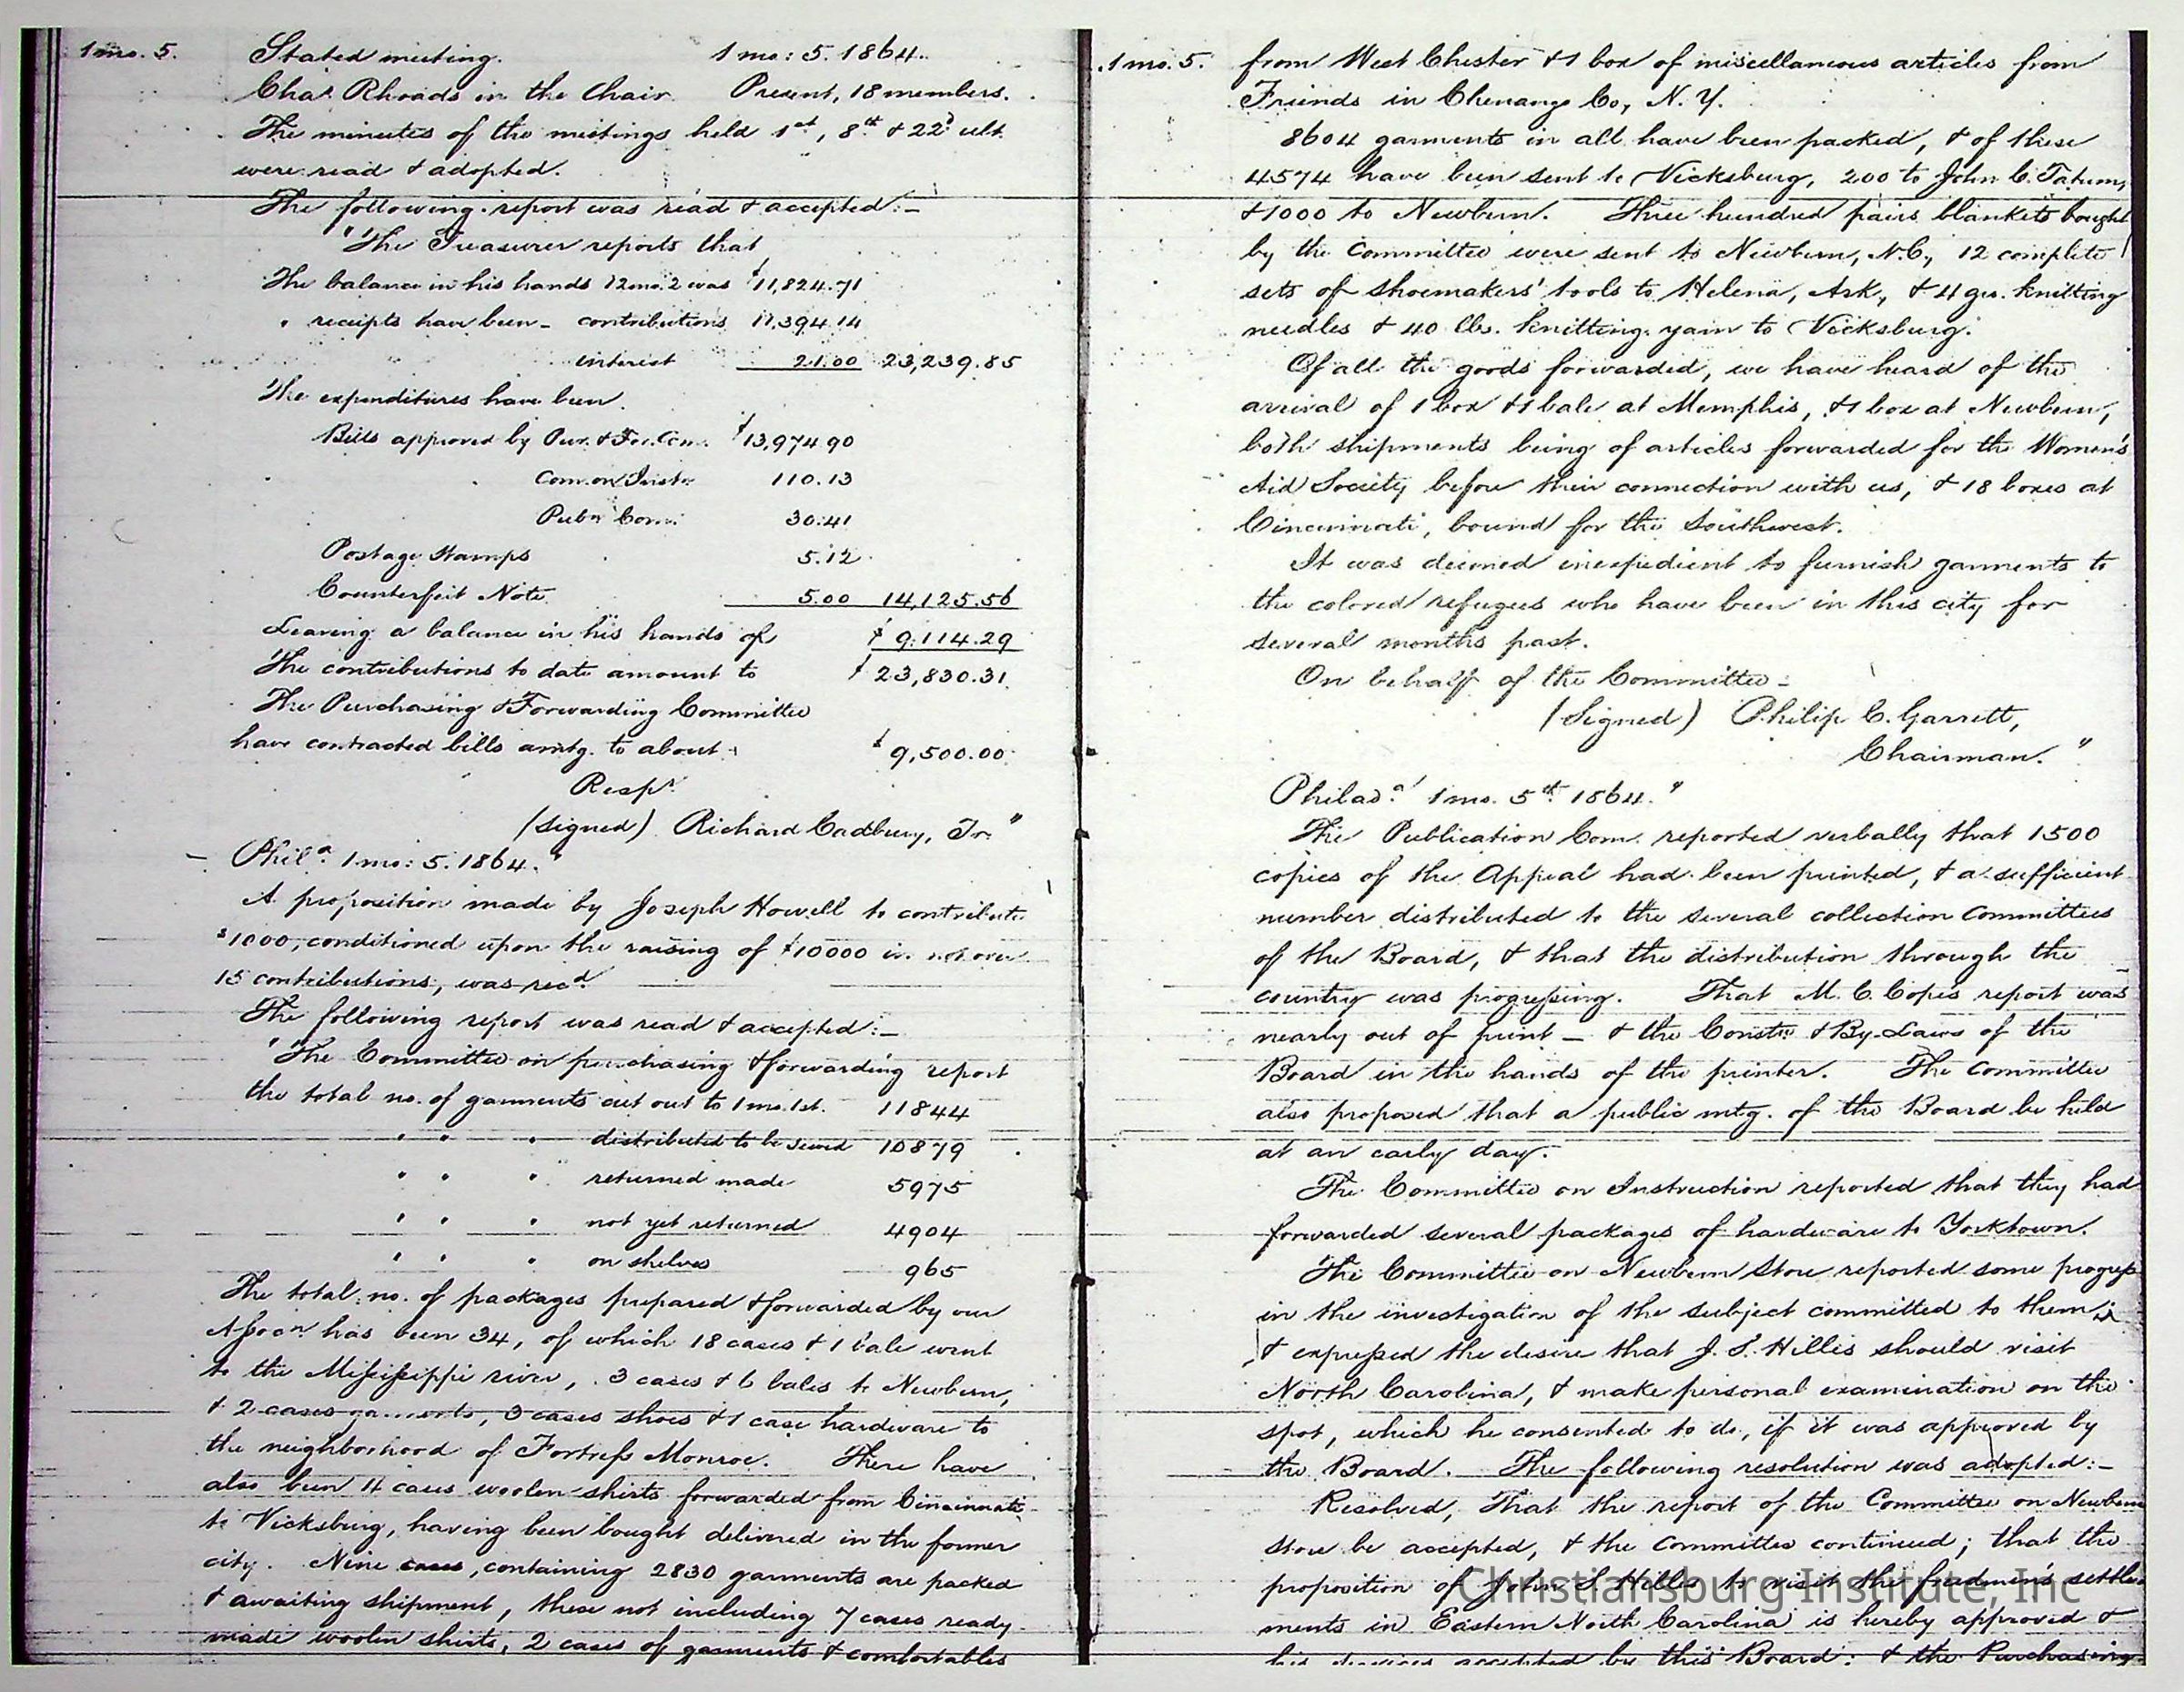 1 mo. 5. Stated meeting. 1 mo: 5. 1864.
Chas. Rhoads in the Chair. Present, 18 members.
The minutes of the meetings held 1st, 8th & 22d ult.
were read & adopted.
The following report was read & accepted:-
"The Treasurer reports that
The balance in his hands 12 mo. 2 was $11,824.71
" receipts have been - contributions 11,394.14
interest 21.00 23,239.85
The expenditures have been.
Bills approved by Pur. & For. Com. $13,974.90
Com. on Instn. 110.13
Pubn. Com. 30.41
Postage Stamps 5.12
Counterfeit Note 5.00 14,125.56
Leaving a balance in his hands of $9,114.29
The contributions to date amount to $23,830.31
The Purchasing & Forwarding Committee
have contracted bills amtg. to about $9,500.00
Respy.
(Signed) Richard Cadbury, Tr."
Phila. 1 mo: 5. 1864."
A proposition made by Joseph Howell to contribute
$1000, conditioned upon the raising of $10000 in not over
15 contributions, was recd.
The following report was read & accepted:-
"The Committee on purchasing & forwarding report
the total no. of garments cut out to 1 mo. 1st. 11844
" " " distributed to be sewed 10879
" " " returned made 5975
" " " not yet returned 4904
" " " on shelves 965
The total no. of packages prepared & forwarded by our
Assocn. has been 34, of which 18 cases & 1 bale went
to the Mississippi river, 3 cases & 6 bales to Newbern,
& 2 cases garments, 3 cases shoes & 1 case hardware to
the neighborhood of Fortress Monroe. There have
also been 4 cases woolen shirts forwarded from Cincinnati
to Vicksburg, having been bought delivered in the former
city. Nine cases, containing 2830 garments are packed
& awaiting shipment, these not including 7 cases ready
made woolen shirts, 2 cases of garments & comfortables
1 mo. 5. from West Chester & 1 box of miscellaneous articles from
Friends in Chenango Co, N. Y.
8604 garments in all have been packed, & of these
4574 have been sent to Vicksburg, 200 to John C. Tatum,
& 1000 to Newbern. Three hundred pairs blankets bought
by the Committee were sent to Newbern, N.C., 12 complete
sets of shoemakers' tools to Helena, Ark., & 4 gr. knitting
needles & 40 lbs. knitting yarn to Vicksburg.
Of all the goods forwarded, we have heard of the
arrival of 1 box & 1 bale at Memphis, & 1 box at Newbern,
both shipments being of articles forwarded for the Women's
Aid Society before their connection with us, & 18 boxes at
Cincinnati, bound for the Southwest.
It was deemed inexpedient to furnish garments to
the colored refugees who have been in this city for
several months past.
On behalf of the Committee -
(Signed) Philip C. Garrett,
Chairman."
Philada. 1 mo. 5th. 1864."
The Publication Com. reported verbally that 1500
copies of the Appeal had been printed, & a sufficient
number distributed to the several collection Committees
of the Board, & that the distribution through the
country was progressing. That M. C. Cope's report was
nearly out of print - & the Constn. & By-Laws of the
Board in the hands of the printer. The Committee
also proposed that a public mtg. of the Board be held
at an early day.
The Committee on Instruction reported that they had
forwarded several packages of hardware to Yorktown.
The Committee on Newbern Store reported some progress
in the investigation of the subject committed to them;
& expressed the desire that J. S. Hilles should visit
North Carolina, & make personal examination on the
spot, which he consented to do, if it was approved by
the Board. The following resolution was adopted:-
Resolved, That the report of the Committee on Newbern
store be accepted, & the Committee continued; that the
proposition of John S. Hilles to visit the freedmen's settle
ments in Eastern North Carolina is hereby approved &
his services accepted by this Board: & the Purchasing
Christiansburg Institute, Inc